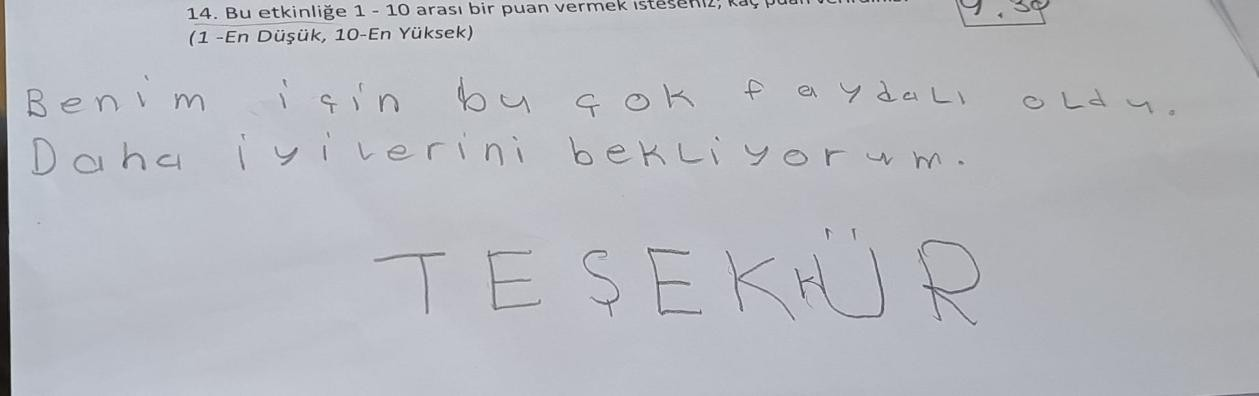 14. Bu etkinliğe 1 - 10 arası bir puan vermek isteseniz, kaç puan
(1 -En Düşük, 10-En Yüksek)
Benim için bu çok faydalı oldu.
Daha iyilerini bekliyorum.
TEŞEKKÜR